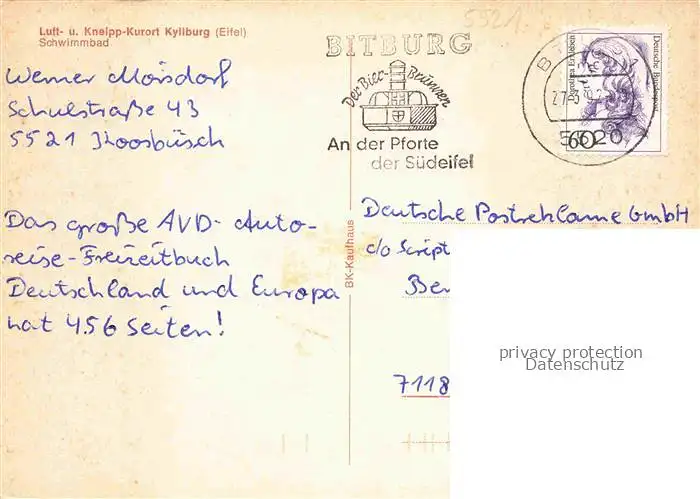 Luft- u. Kneipp-Kurort Kyllburg (Eifel)
Schwimmbad
5521
BITBURG
Der Bier-Brunnen
An der Pforte
der Südeifel
Dorothea Erxleben
Deutsche Bundespost
60
5520
Werner Morsdorf
Schulstraße 43
5521 Koosbüsch
Das große AVD-Auto-
reise-Freizeitbuch
Deutschland und Europa
hat 456 Seiten!
BK-Kaufhaus
Deutsche Postreklame GmbH
c/o Script
Ber
7118
privacy protection
Datenschutz